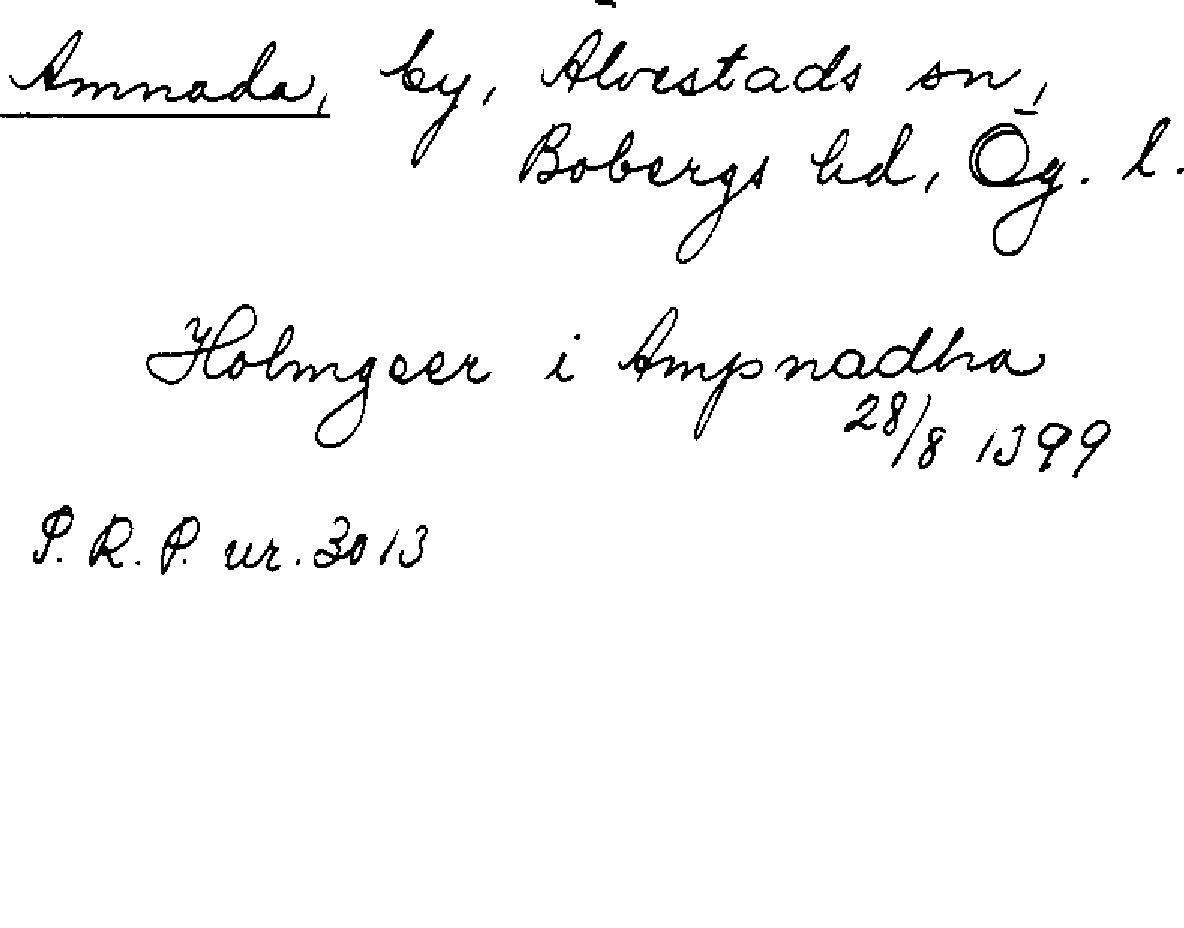 Amnada, by, Älvestads sn,
Bobergs hd, Ög. l.
Holmgeer i Ampnadha
28/8 1399
P. R. P. nr. 3013